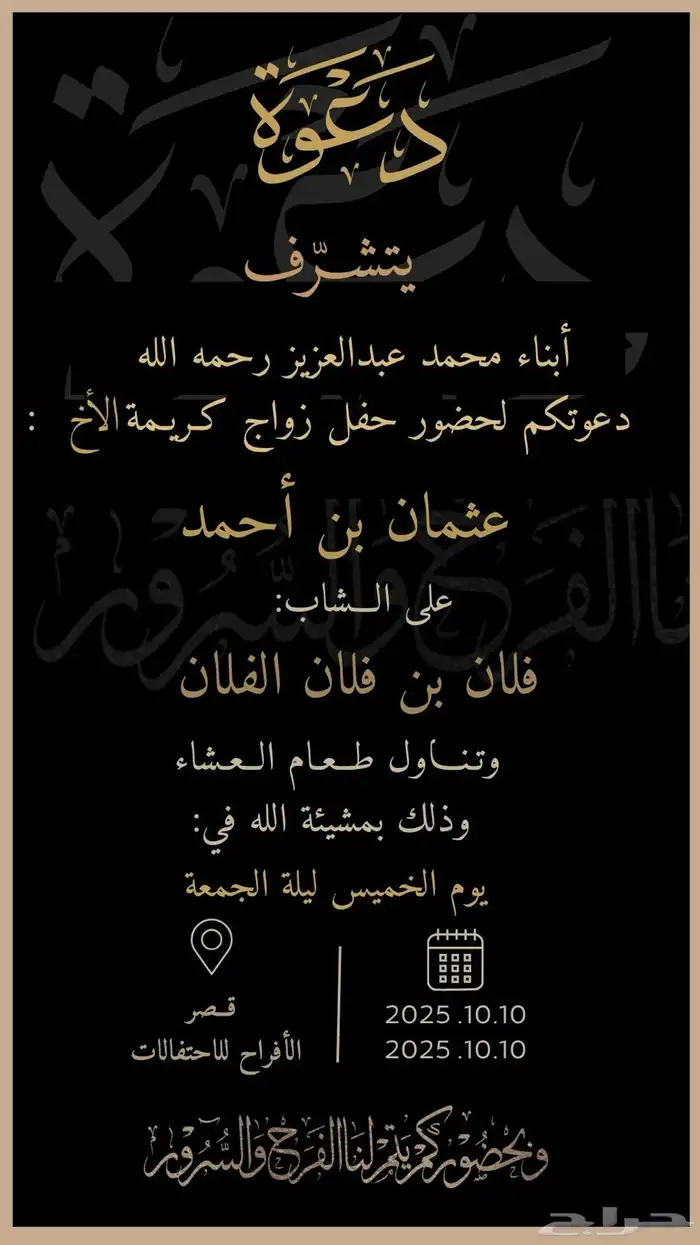 دعوة
يتشرّف
أبناء محمد عبدالعزيز رحمه الله
دعوتكم لحضور حفل زواج كريمة الأخ :
عثمان بن أحمد
على الشاب:
فلان بن فلان الفلان
وتناول طعام العشاء
وذلك بمشيئة الله في:
يوم الخميس ليلة الجمعة
2025 .10.10
2025 .10.10
قصر
الأفراح للاحتفالات
وبحضوركم يتم لنا الفرح والسرور
حراج